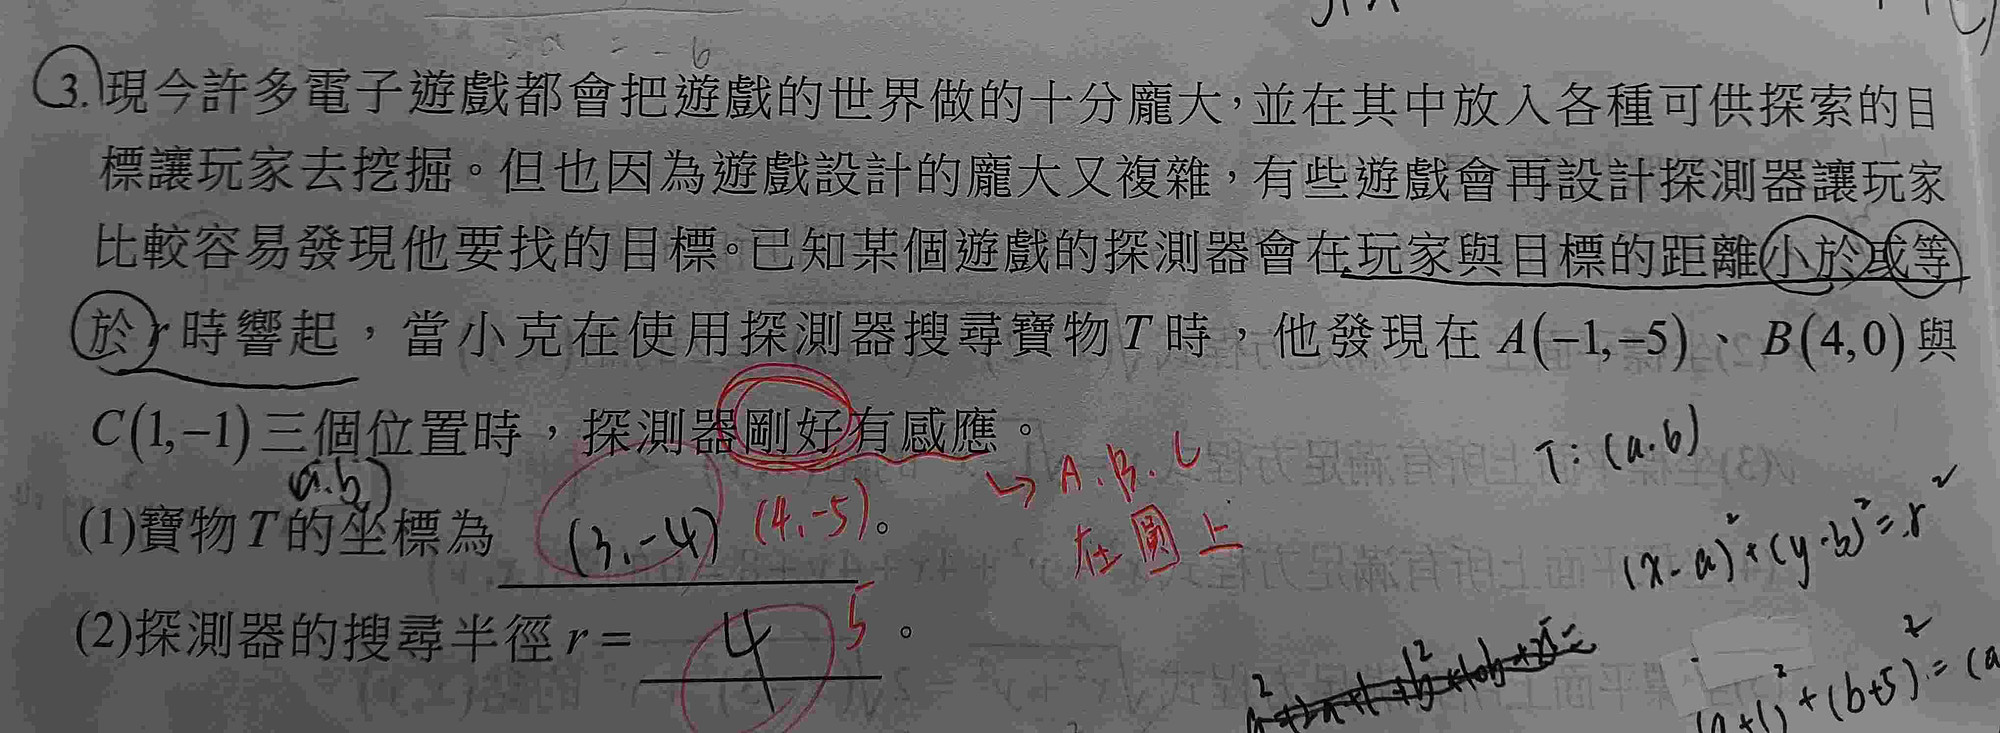 = -6
3. 現今許多電子遊戲都會把遊戲的世界做的十分龐大，並在其中放入各種可供探索的目
標讓玩家去挖掘。但也因為遊戲設計的龐大又複雜，有些遊戲會再設計探測器讓玩家
比較容易發現他要找的目標。已知某個遊戲的探測器會在玩家與目標的距離小於或等
於 r 時響起，當小克在使用探測器搜尋寶物 T 時，他發現在 A(-1,-5)、B(4,0) 與
C(1,-1) 三個位置時，探測器剛好有感應。
T: (a.b)
→ A.B.C
在圓上
(a.b)
(1)寶物 T 的坐標為 (3,-4) (4,-5)。
(x-a)²+(y-b)²=r²
(2)探測器的搜尋半徑 r = 4 5。
(a+1)²+(b+5)²=(a